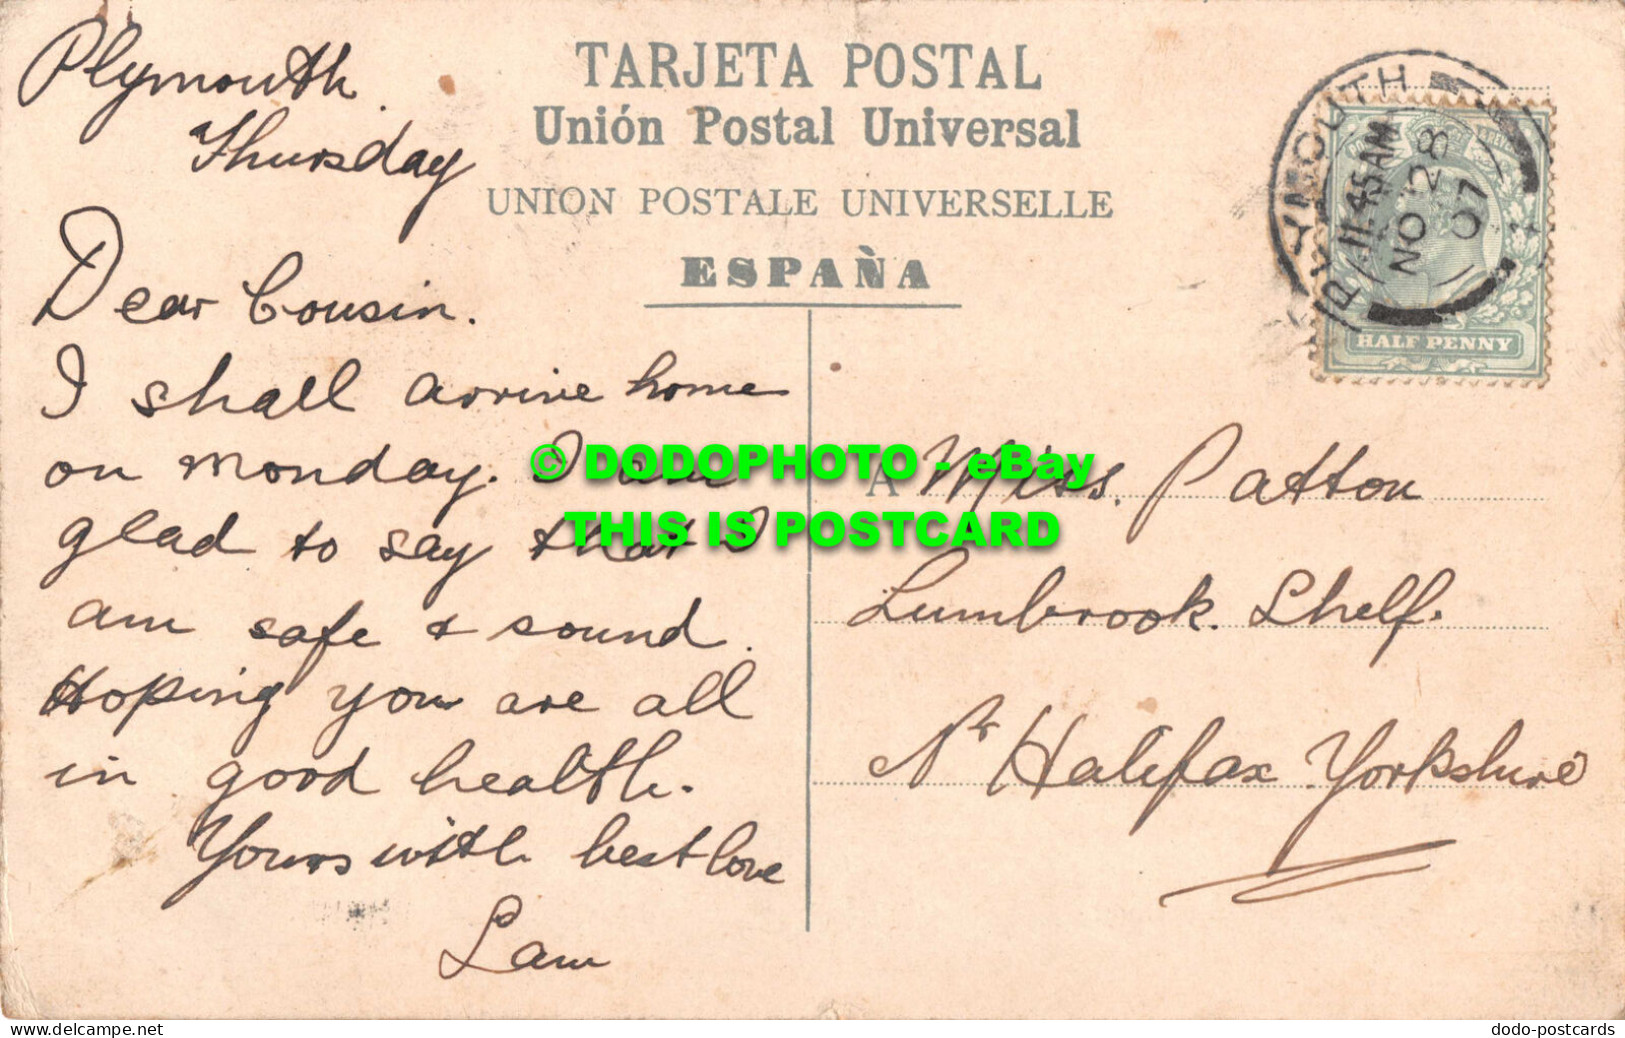 TARJETA POSTAL
Unión Postal Universal
UNION POSTALE UNIVERSELLE
ESPAÑA
Plymouth.
Thursday
Dear Cousin.
I shall arrive home
on Monday. I am
glad to say that I
am safe & sound.
Hoping you are all
in good health.
Yours with best love
Sam
PLYMOUTH
11.45AM
NO 28
07
HALF PENNY
A Miss. Patton
Lumbrook. Shelf.
Nr Halifax Yorkshire
© DODOPHOTO - eBay
THIS IS POSTCARD
www.delcampe.net
dodo-postcards